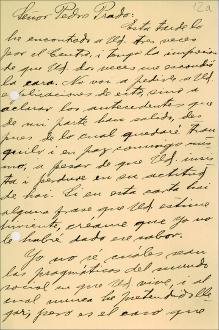 Señor Pedro Prado:
Esta tarde lo
he encontrado a Ud. tres veces
por el Centro, i tengo la impresión
de que Ud. dos veces me escondió
la cara. No voi a pedirle a Ud.
esplicaciones de esto, sino a
aclarar los antecedentes que
de mi parte han salido, des-
pues de lo cual quedaré tran-
quilo i en paz conmigo mis-
mo, a pesar de que Ud. insis-
ta i perdure en su actitud
de hoi. Si en esta carta hai
alguna frase que Ud. estime
hiriente, créame que yo no
le habré dado ese sabor.
Yo no sé, cuáles son
las pragmáticas del mundo
social en que Ud. vive, i al
cual nunca he pretendido lle-
gar; pero es el caso que